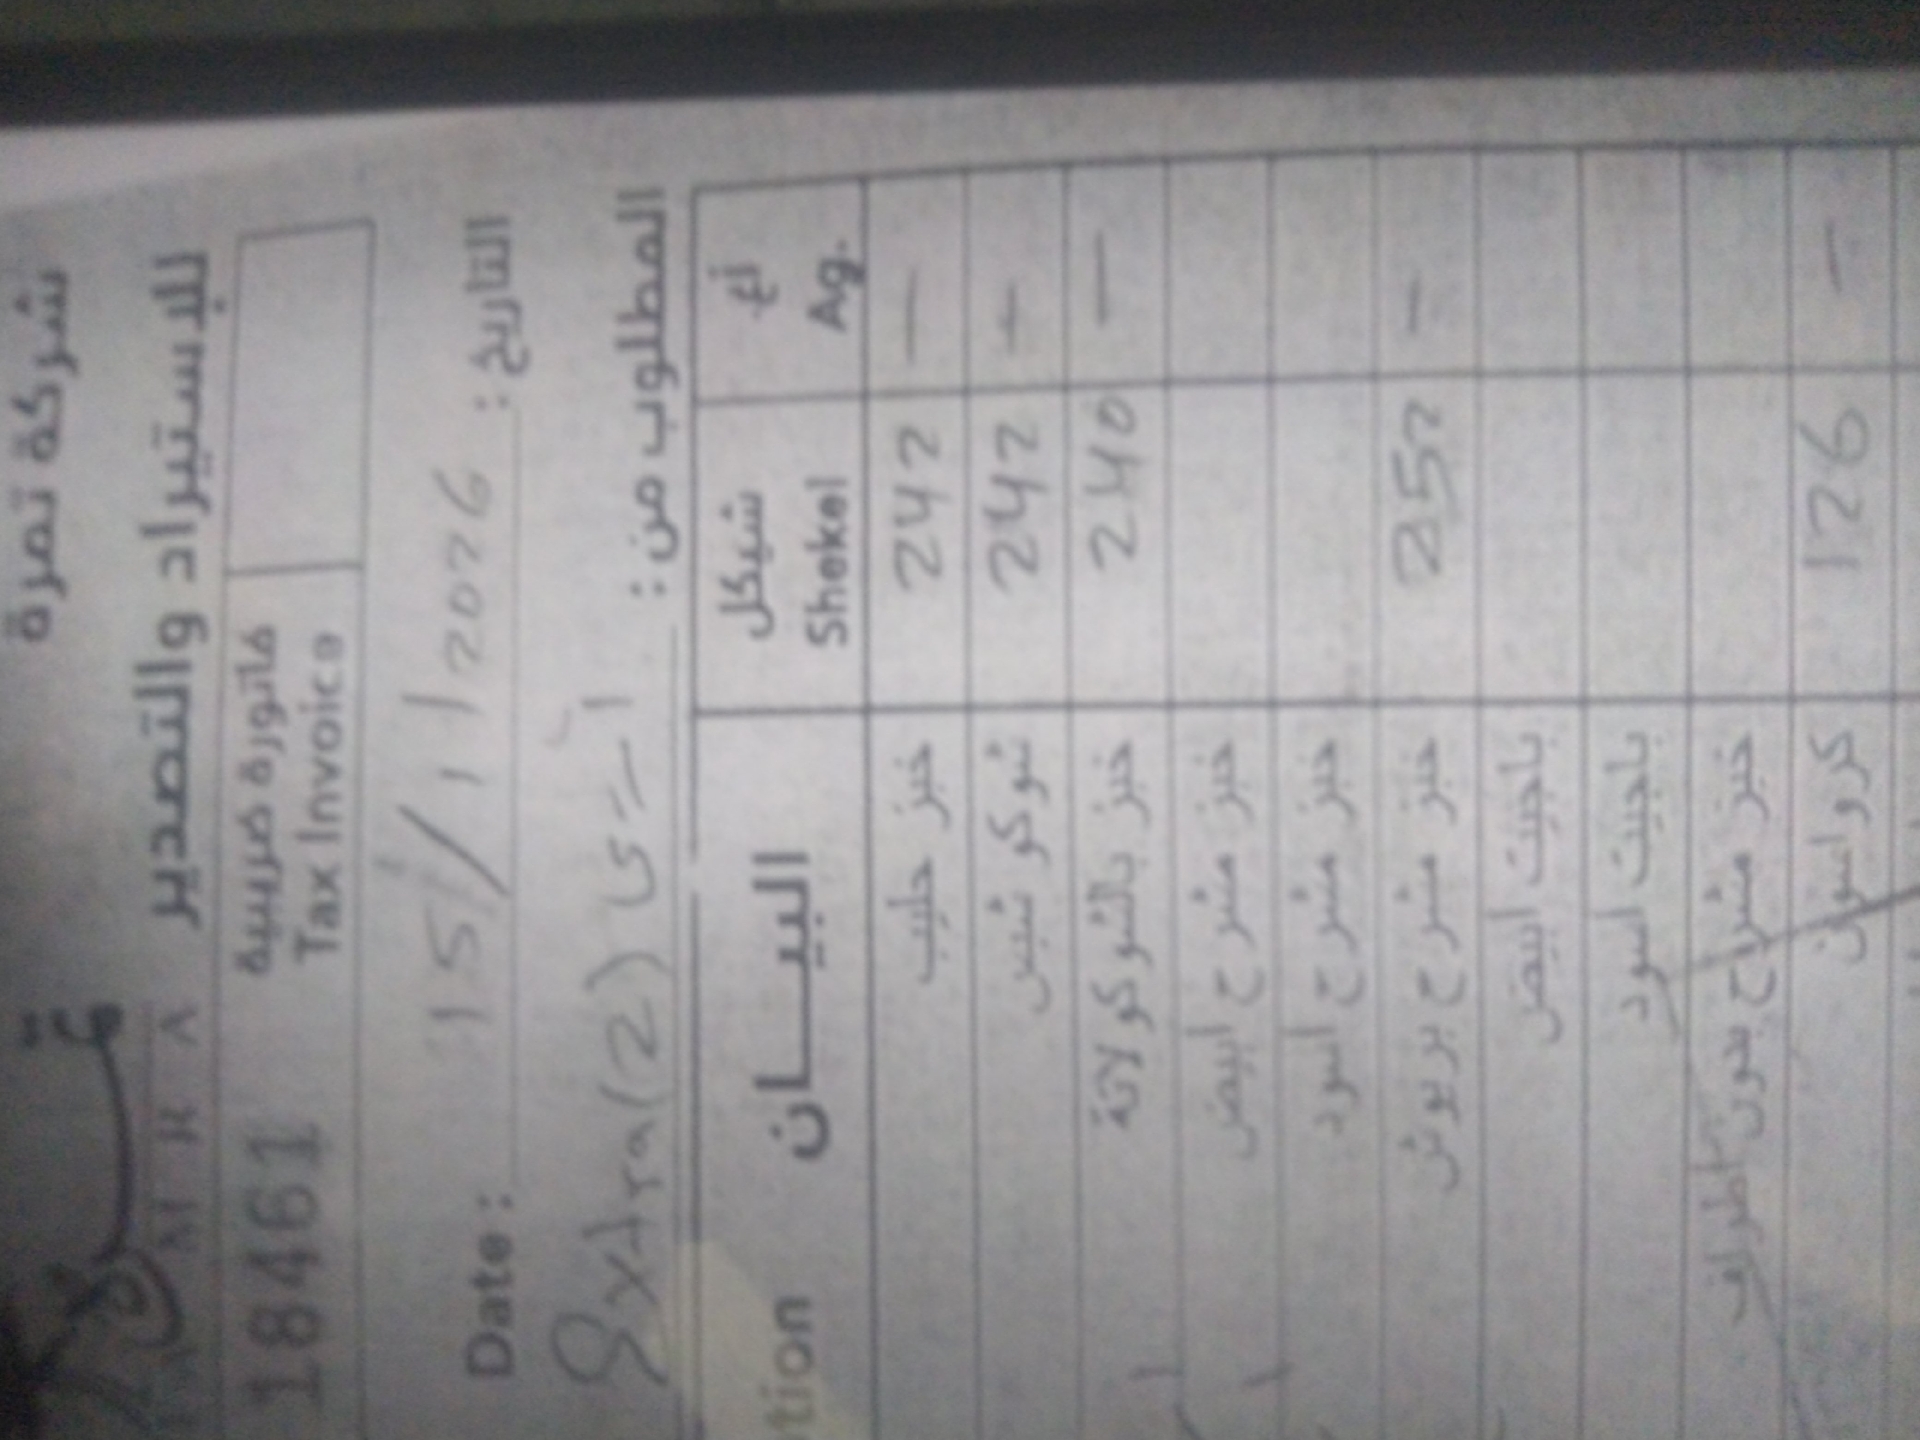 شركة تمرة
للاستيراد والتصدير
فاتورة ضريبية
Tax Invoice
18461
Date : 15/1/2026 التاريخ :
المطلوب من : Extra (2)
شيكل Shekel
أغ Ag.
البيـــان
tion
242 — خبز حليب
242 — شوكو شبس
240 — خبز بالشوكولاتة
خبز مشرح ابيض
خبز مشرح اسود
252 — خبز مشرح بريوش
باجيت ابيض
باجيت اسود
خبز مشراح بدون اطراف
126 — كرواسون